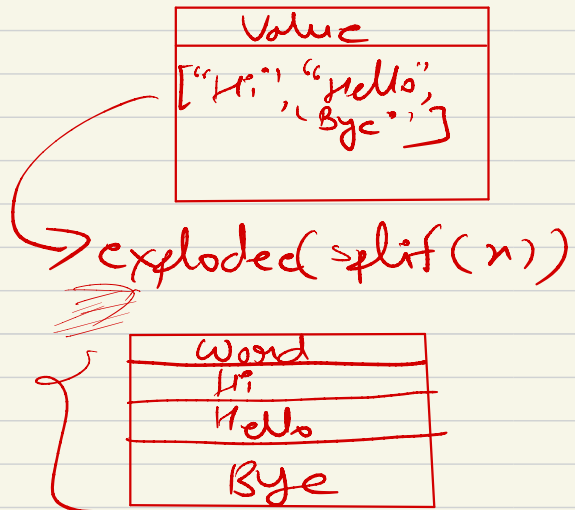 Value
["Hi", "Hello",
"Bye"]
exploded(split(x))
Word
Hi
Hello
Bye